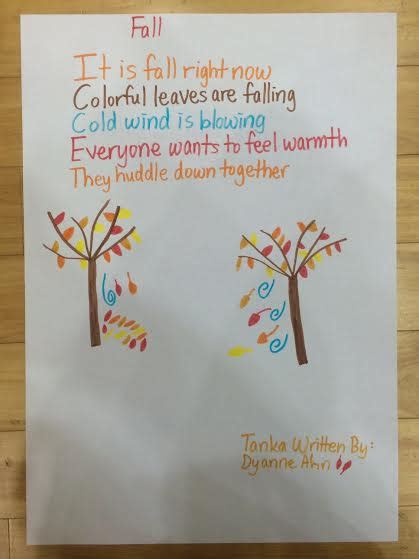 Fall
It is fall right now
Colorful leaves are falling
Cold wind is blowing
Everyone wants to feel warmth
They huddle down together
Tanka Written By:
Dyanne Ahn